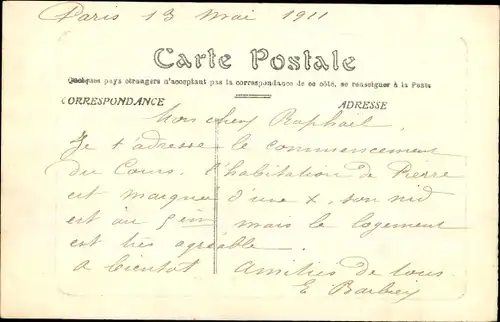 Paris 13 Mai 1911
Carte Postale
Quelques pays étrangers n'acceptant pas la correspondance de ce côté, se renseigner à la Poste
CORRESPONDANCE
ADRESSE
Mon cher Raphaël,
Je t'adresse le commencement
du Cours. l'habitation de Pierre
est marquée d'une x, son nid
est au 5 ein mais le logement
est très agréable.
A bientôt Amitiés de tous
E Barbier